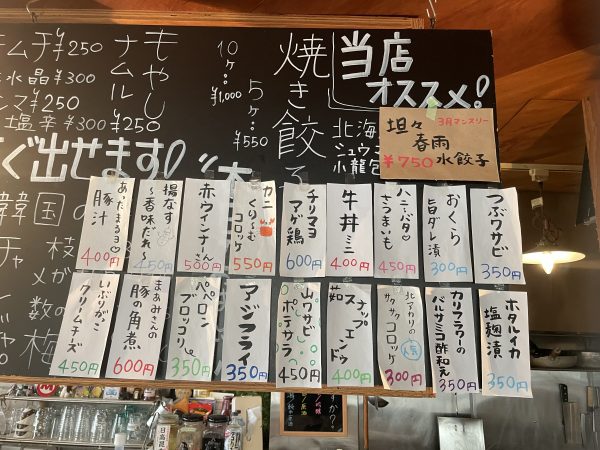 当店
オススメ!
3月マンスリー
坦々
春雨
水餃子
¥750
焼き餃子
5ヶ:
¥550
10ヶ:
¥1,000
もやし
ナムル
¥250
¥300
¥250
塩辛 ¥300
¥250
ぐ出せます!
韓国の
つぶワサビ
350円
おくら
旨ダレ漬
300円
ハニーバタ♡
さつまいも
450円
牛丼ミニ
400円
チリマヨ
アゲ鶏
600円
カニ
くりーむ
コロッケ
550円
赤ウインナーさん
500円
揚なす
~香味だれ~
450円
あったまるヨ♡
豚汁
400円
ホタルイカ
塩麹漬
350円
カリフラワーの
バルサミコ酢和え
350円
北アカリの
サクサク
コロッケ
人気
300円
茹スナップ
エンドウ
400円
山ワサビ
ポテサラ
450円
アジフライ
350円
ペペロン
ブロッコリ
350円
まあみさんの
豚の角煮
600円
いぶりがっこ
クリームチーズ
450円